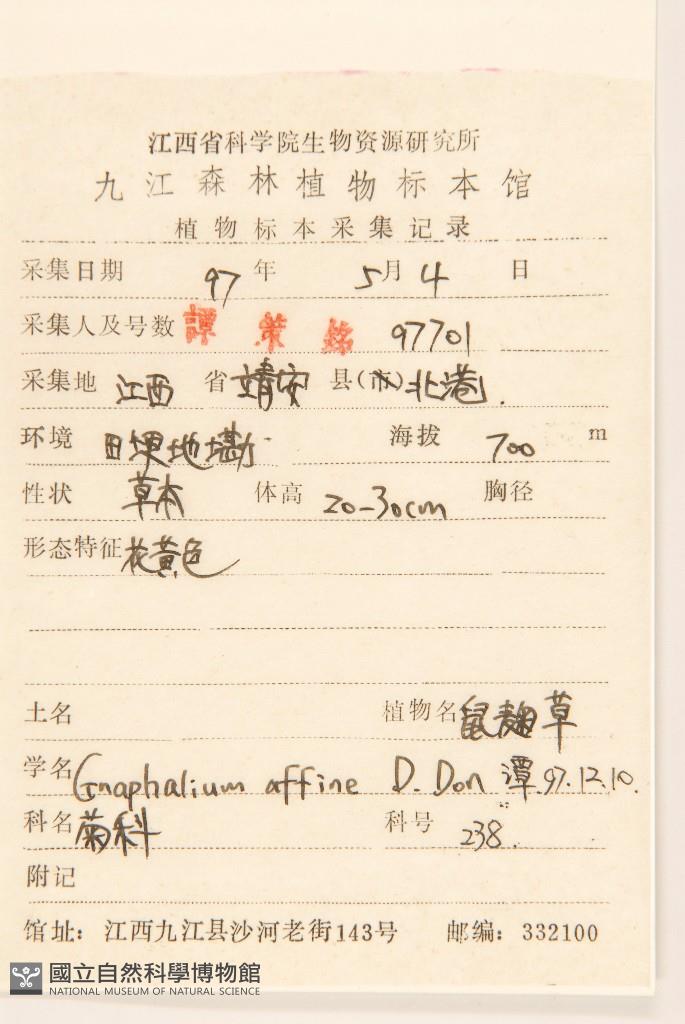 江西省科学院生物资源研究所
九江森林植物标本馆
植物标本采集记录
采集日期 97 年 5 月 4 日
采集人及号数 譚策銘 97701
采集地 江西 省 靖安 县(市) 北港.
环境 田埂地墈 海拔 700 m
性状 草本 体高 20-30cm 胸径
形态特征 花黄色
土名 植物名 鼠麹草
学名 Gnaphalium affine D. Don 潭.97.12.10.
科名 菊科 科号 238.
附记
馆址: 江西九江县沙河老街143号 邮编: 332100
國立自然科學博物館
NATIONAL MUSEUM OF NATURAL SCIENCE